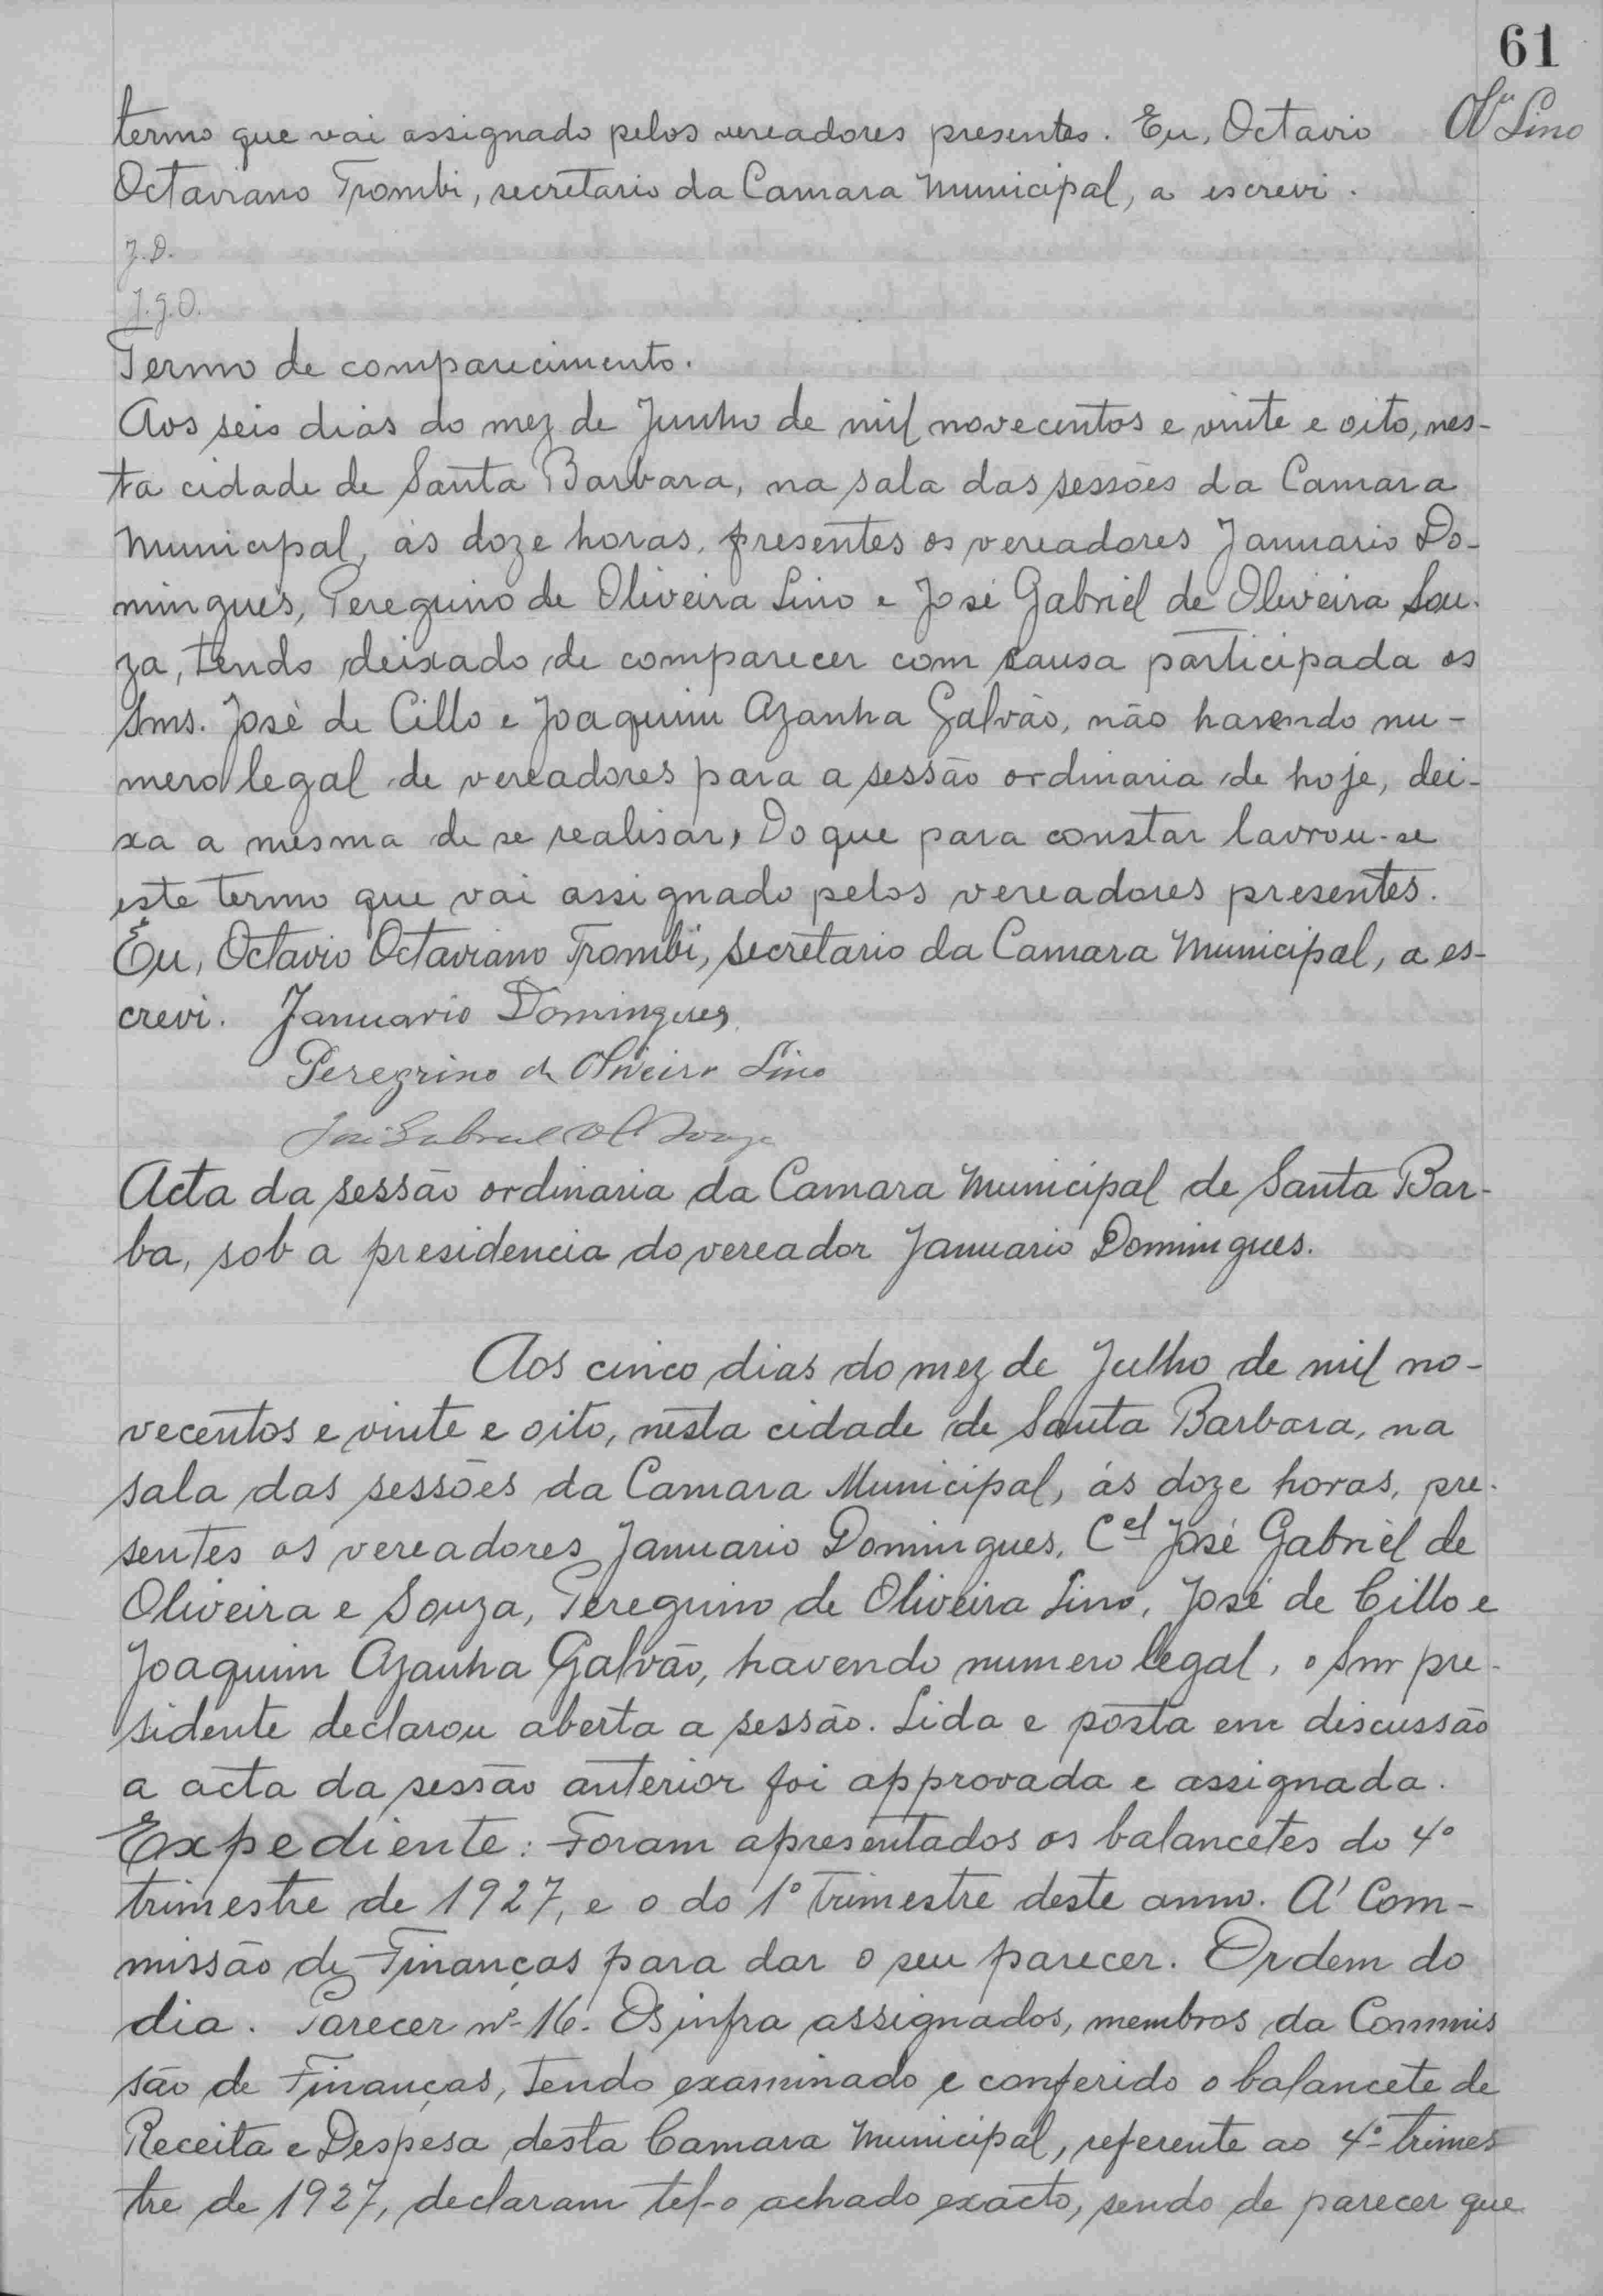 61
Ol Lino
termo que vai assignado pelos vereadores presentes. Eu, Octavio
Octaviano Trombi, secretario da Camara Municipal, a escrevi.
J.D.
J.G.O.
Termo de comparecimento.
Aos seis dias do mez de Junho de mil novecentos e vinte e oito, nes-
ta cidade de Santa Barbara, na sala das sessões da Camara
Municipal, ás doze horas, presentes os vereadores Januario Do-
mingues, Peregrino de Oliveira Lino e José Gabriel de Oliveira Sou-
za, tendo deixado de comparecer com causa participada os
Snrs. José de Cillo e Joaquim Azanha Galvão, não havendo nu-
mero legal de vereadores para a sessão ordinaria de hoje, dei-
xa a mesma de se realisar, Do que para constar lavrou-se
este termo que vai assignado pelos vereadores presentes.
Eu, Octavio Octaviano Trombi, secretario da Camara Municipal, a es-
crevi. Januario Domingues
Peregrino de Oliveira Lino
José Gabriel Ol Souza
Acta da sessão ordinaria da Camara Municipal de Santa Bar-
ba, sob a presidencia do vereador Januario Domingues.
Aos cinco dias do mez de Julho de mil no-
vecentos e vinte e oito, nesta cidade de Santa Barbara, na
sala das sessões da Camara Municipal, ás doze horas, pre-
sentes os vereadores Januario Domingues, Cel José Gabriel de
Oliveira e Souza, Peregrino de Oliveira Lino, José de Cillo e
Joaquim Azanha Galvão, havendo numero legal, o Snr pre-
sidente declarou aberta a sessão. Lida e posta em discussão
a acta da sessão anterior foi approvada e assignada.
Expediente: Foram apresentados os balancetes do 4º
trimestre de 1927, e o do 1º trimestre deste anno. A' Com-
missão de Finanças para dar o seu parecer. Ordem do
dia. Parecer nº 16. Os infra assignados, membros da Commis
são de Finanças, tendo examinado e conferido o balancete de
Receita e Despesa desta Camara Municipal, referente ao 4º trimes
tre de 1927, declaram tel-o achado exacto, sendo de parecer que